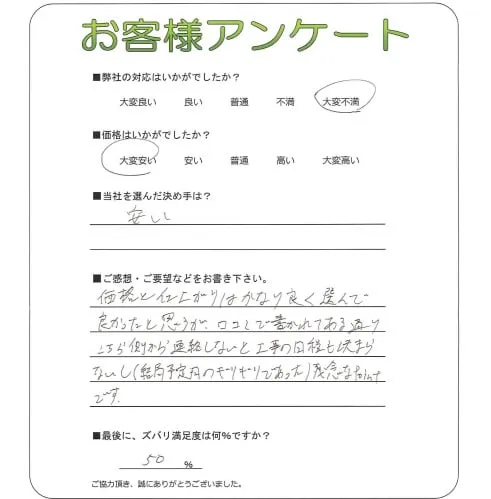 お客様アンケート
■弊社の対応はいかがでしたか？
大変良い 良い 普通 不満 大変不満
■価格はいかがでしたか？
大変安い 安い 普通 高い 大変高い
■当社を選んだ決め手は？
安い
■ご感想・ご要望などをお書き下さい。
価格と仕上がりはかなり良く選んで
良かったと思うが、口コミで書かれてある通り
こちら側から連絡しないと工事の日程も決まら
ないし(結局予定月のギリギリであった)残念なpoint
です.
■最後に、ズバリ満足度は何％ですか？
50 %
ご協力頂き、誠にありがとうございました。